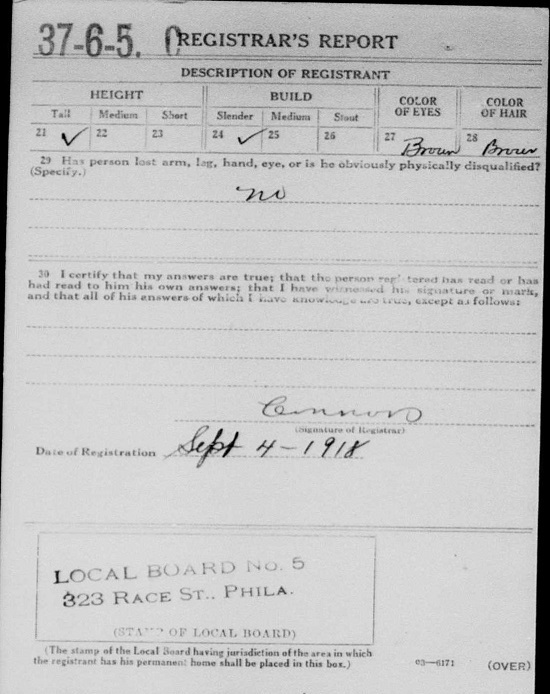 37-6-5. C REGISTRAR'S REPORT
DESCRIPTION OF REGISTRANT
HEIGHT BUILD COLOR OF EYES COLOR OF HAIR
Tall Medium Short Slender Medium Stout
21 ✓ 22 23 24 ✓ 25 26 27 Brown 28 Brown
29 Has person lost arm, leg, hand, eye, or is he obviously physically disqualified?
(Specify.)
no
30 I certify that my answers are true; that the person registered has read or has
had read to him his own answers; that I have witnessed his signature or mark,
and that all of his answers of which I have knowledge are true, except as follows:
(Signature of Registrar)
Date of Registration Sept 4-1918
LOCAL BOARD NO. 5
323 RACE ST., PHILA.
(STAMP OF LOCAL BOARD)
(The stamp of the Local Board having jurisdiction of the area in which
the registrant has his permanent home shall be placed in this box.)
03-6171 (OVER)